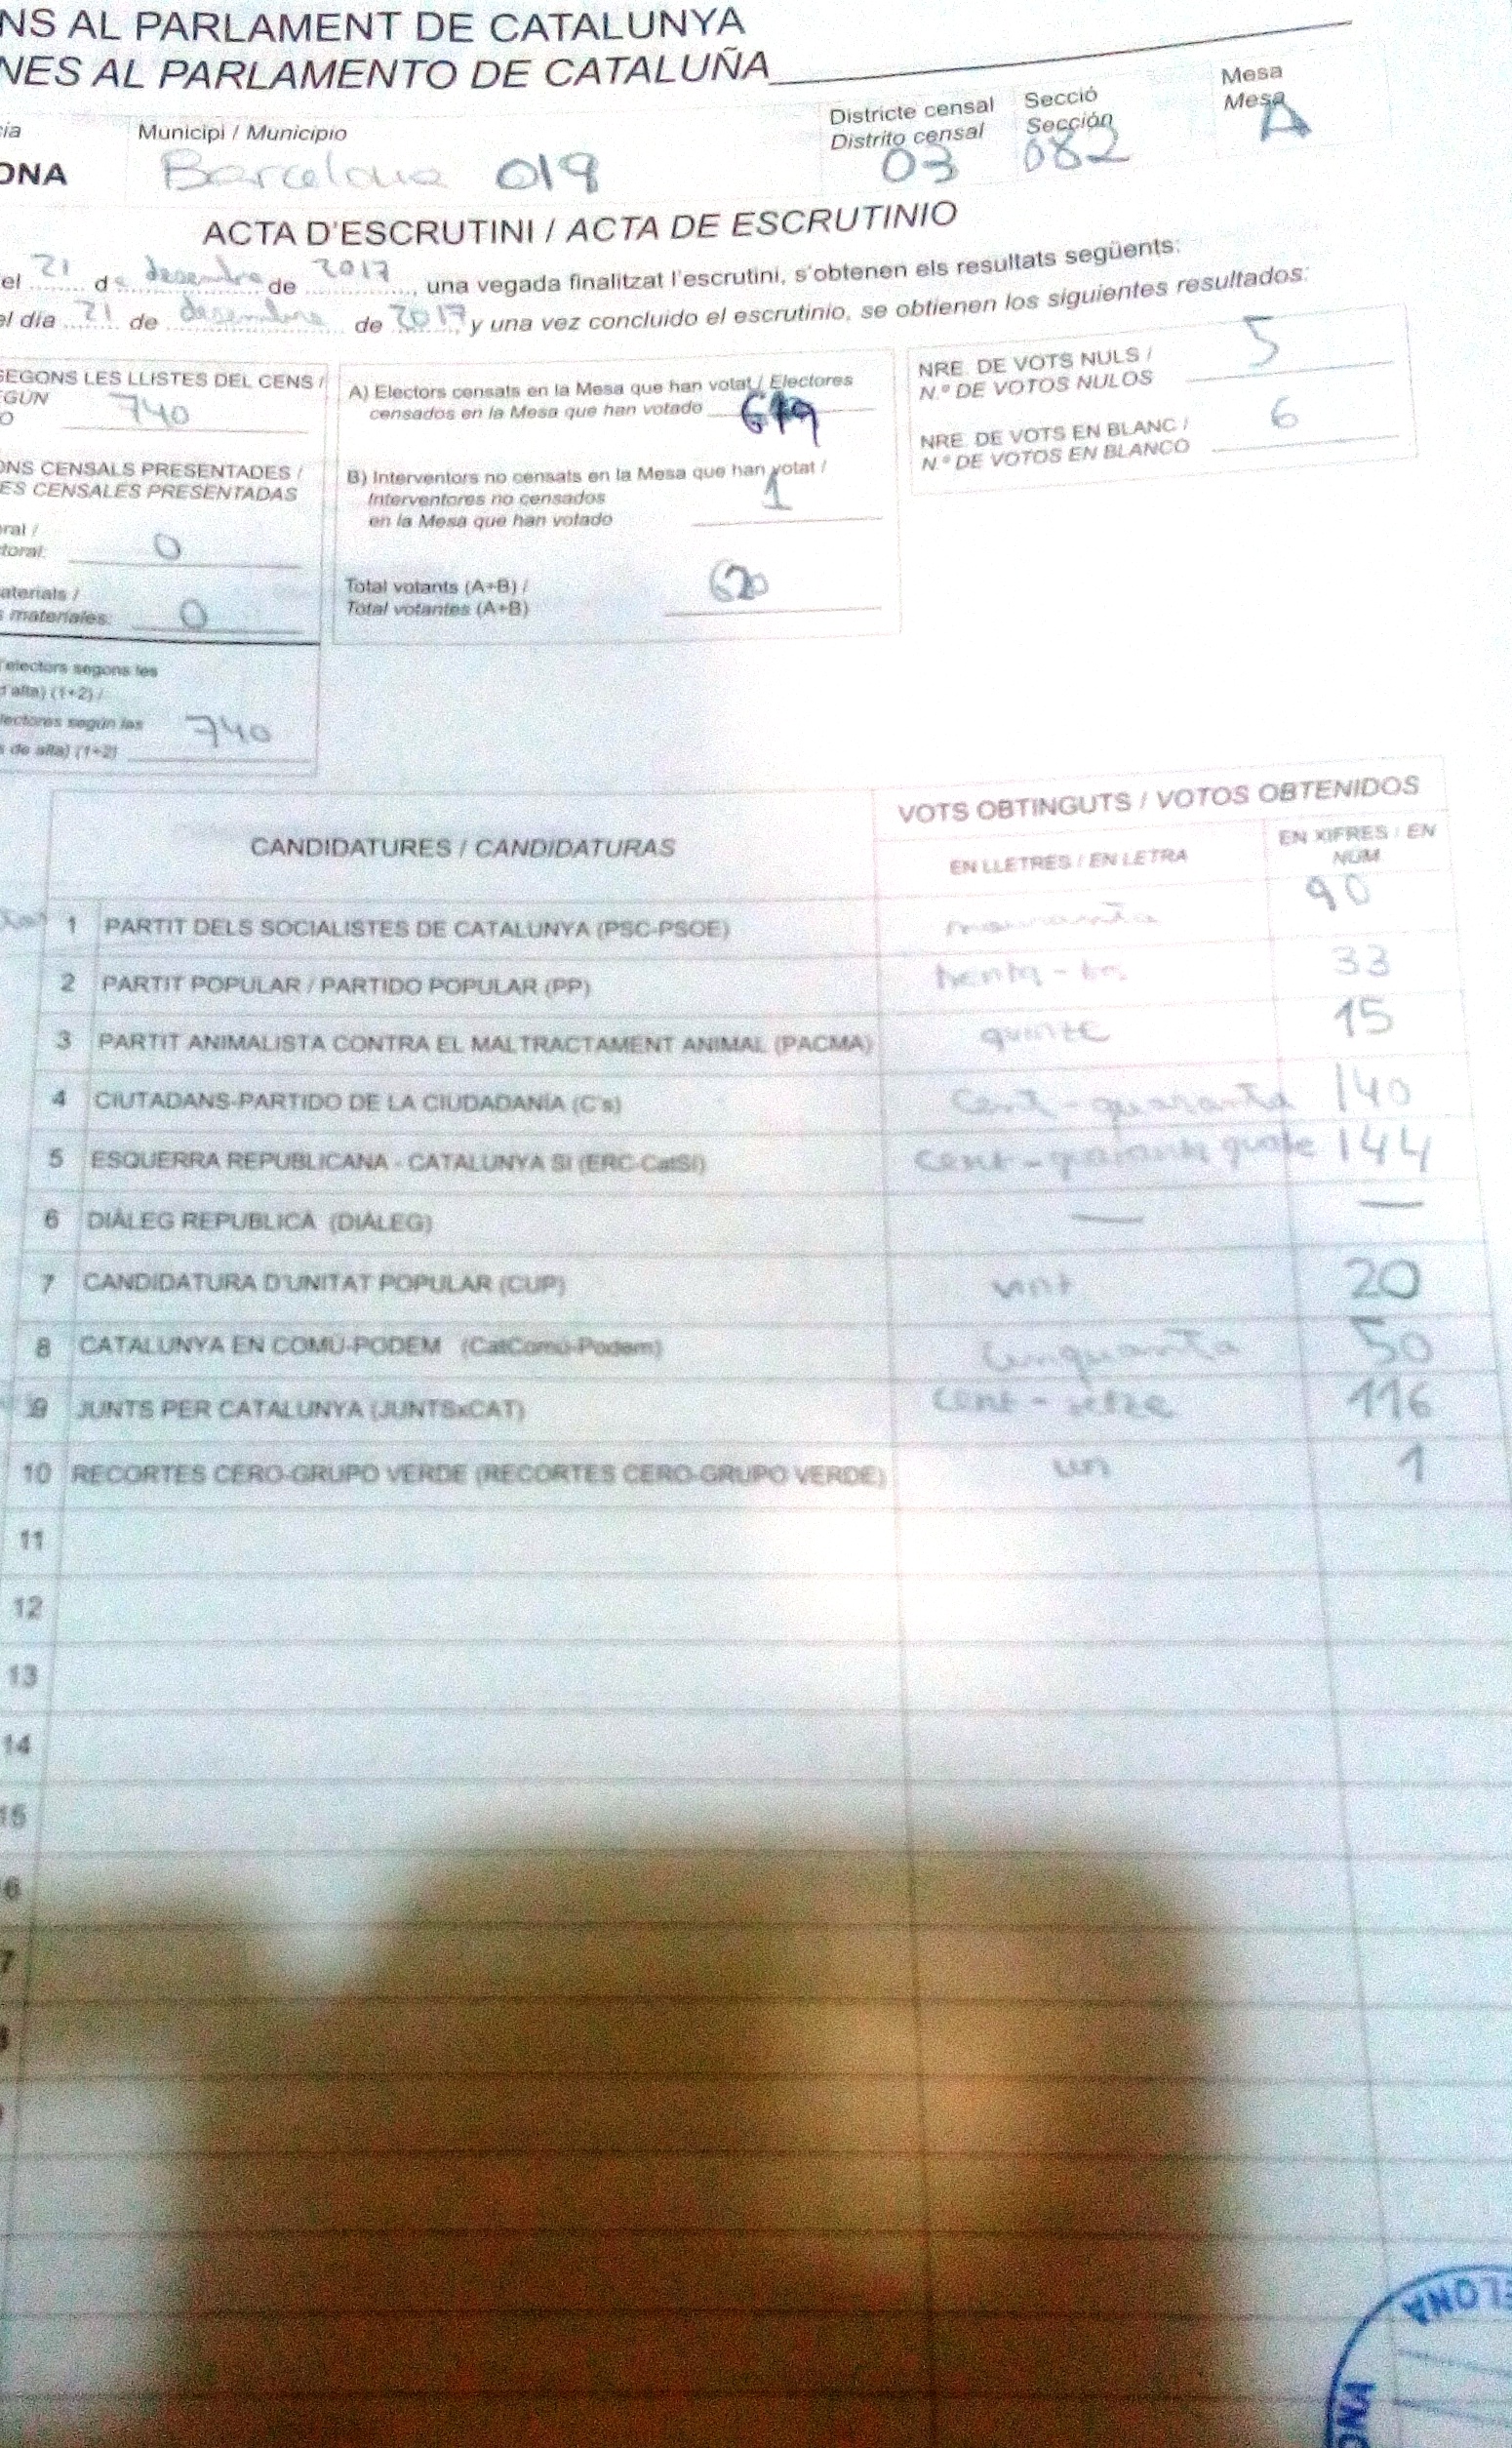 NS AL PARLAMENT DE CATALUNYA
NES AL PARLAMENTO DE CATALUÑA
cia
ONA
Municipi / Municipio
Barcelona 019
Districte censal
Distrito censal
03
Secció
Sección
082
Mesa
Mesa
A
ACTA D'ESCRUTINI / ACTA DE ESCRUTINIO
el 21 de desembre de 2017, una vegada finalitzat l'escrutini, s'obtenen els resultats següents:
el día 21 de desembre de 2017 y una vez concluido el escrutinio, se obtienen los siguientes resultados:
SEGONS LES LLISTES DEL CENS /
GÚN
O
740
ONS CENSALS PRESENTADES /
ES CENSALES PRESENTADAS
oral /
toral: 0
aterials /
s materiales: 0
'electors segons les
d'alta) (1+2) /
lectores según las
s de alta) (1+2) 740
A) Electors censats en la Mesa que han votat / Electores
censados en la Mesa que han votado 619
B) Interventors no censats en la Mesa que han votat /
Interventores no censados
en la Mesa que han votado 1
Total votants (A+B) /
Total votantes (A+B) 620
NRE. DE VOTS NULS /
N.º DE VOTOS NULOS 5
NRE. DE VOTS EN BLANC /
N.º DE VOTOS EN BLANCO 6
CANDIDATURES / CANDIDATURAS
VOTS OBTINGUTS / VOTOS OBTENIDOS
EN LLETRES / EN LETRA
EN XIFRES / EN
NÚM.
1 PARTIT DELS SOCIALISTES DE CATALUNYA (PSC-PSOE) 90
2 PARTIT POPULAR / PARTIDO POPULAR (PP) trenta-tres 33
3 PARTIT ANIMALISTA CONTRA EL MALTRACTAMENT ANIMAL (PACMA) quinze 15
4 CIUTADANS-PARTIDO DE LA CIUDADANÍA (C's) Cent-quaranta 140
5 ESQUERRA REPUBLICANA - CATALUNYA SÍ (ERC-CatSí) Cent-quaranta quatre 144
6 DIÀLEG REPUBLICÀ (DIÀLEG) — —
7 CANDIDATURA D'UNITAT POPULAR (CUP) vint 20
8 CATALUNYA EN COMÚ-PODEM (CatComú-Podem) Cinquanta 50
9 JUNTS PER CATALUNYA (JUNTSxCAT) Cent-setze 116
10 RECORTES CERO-GRUPO VERDE (RECORTES CERO-GRUPO VERDE) un 1
11
12
13
14
15
6
7
ELONA
ONA